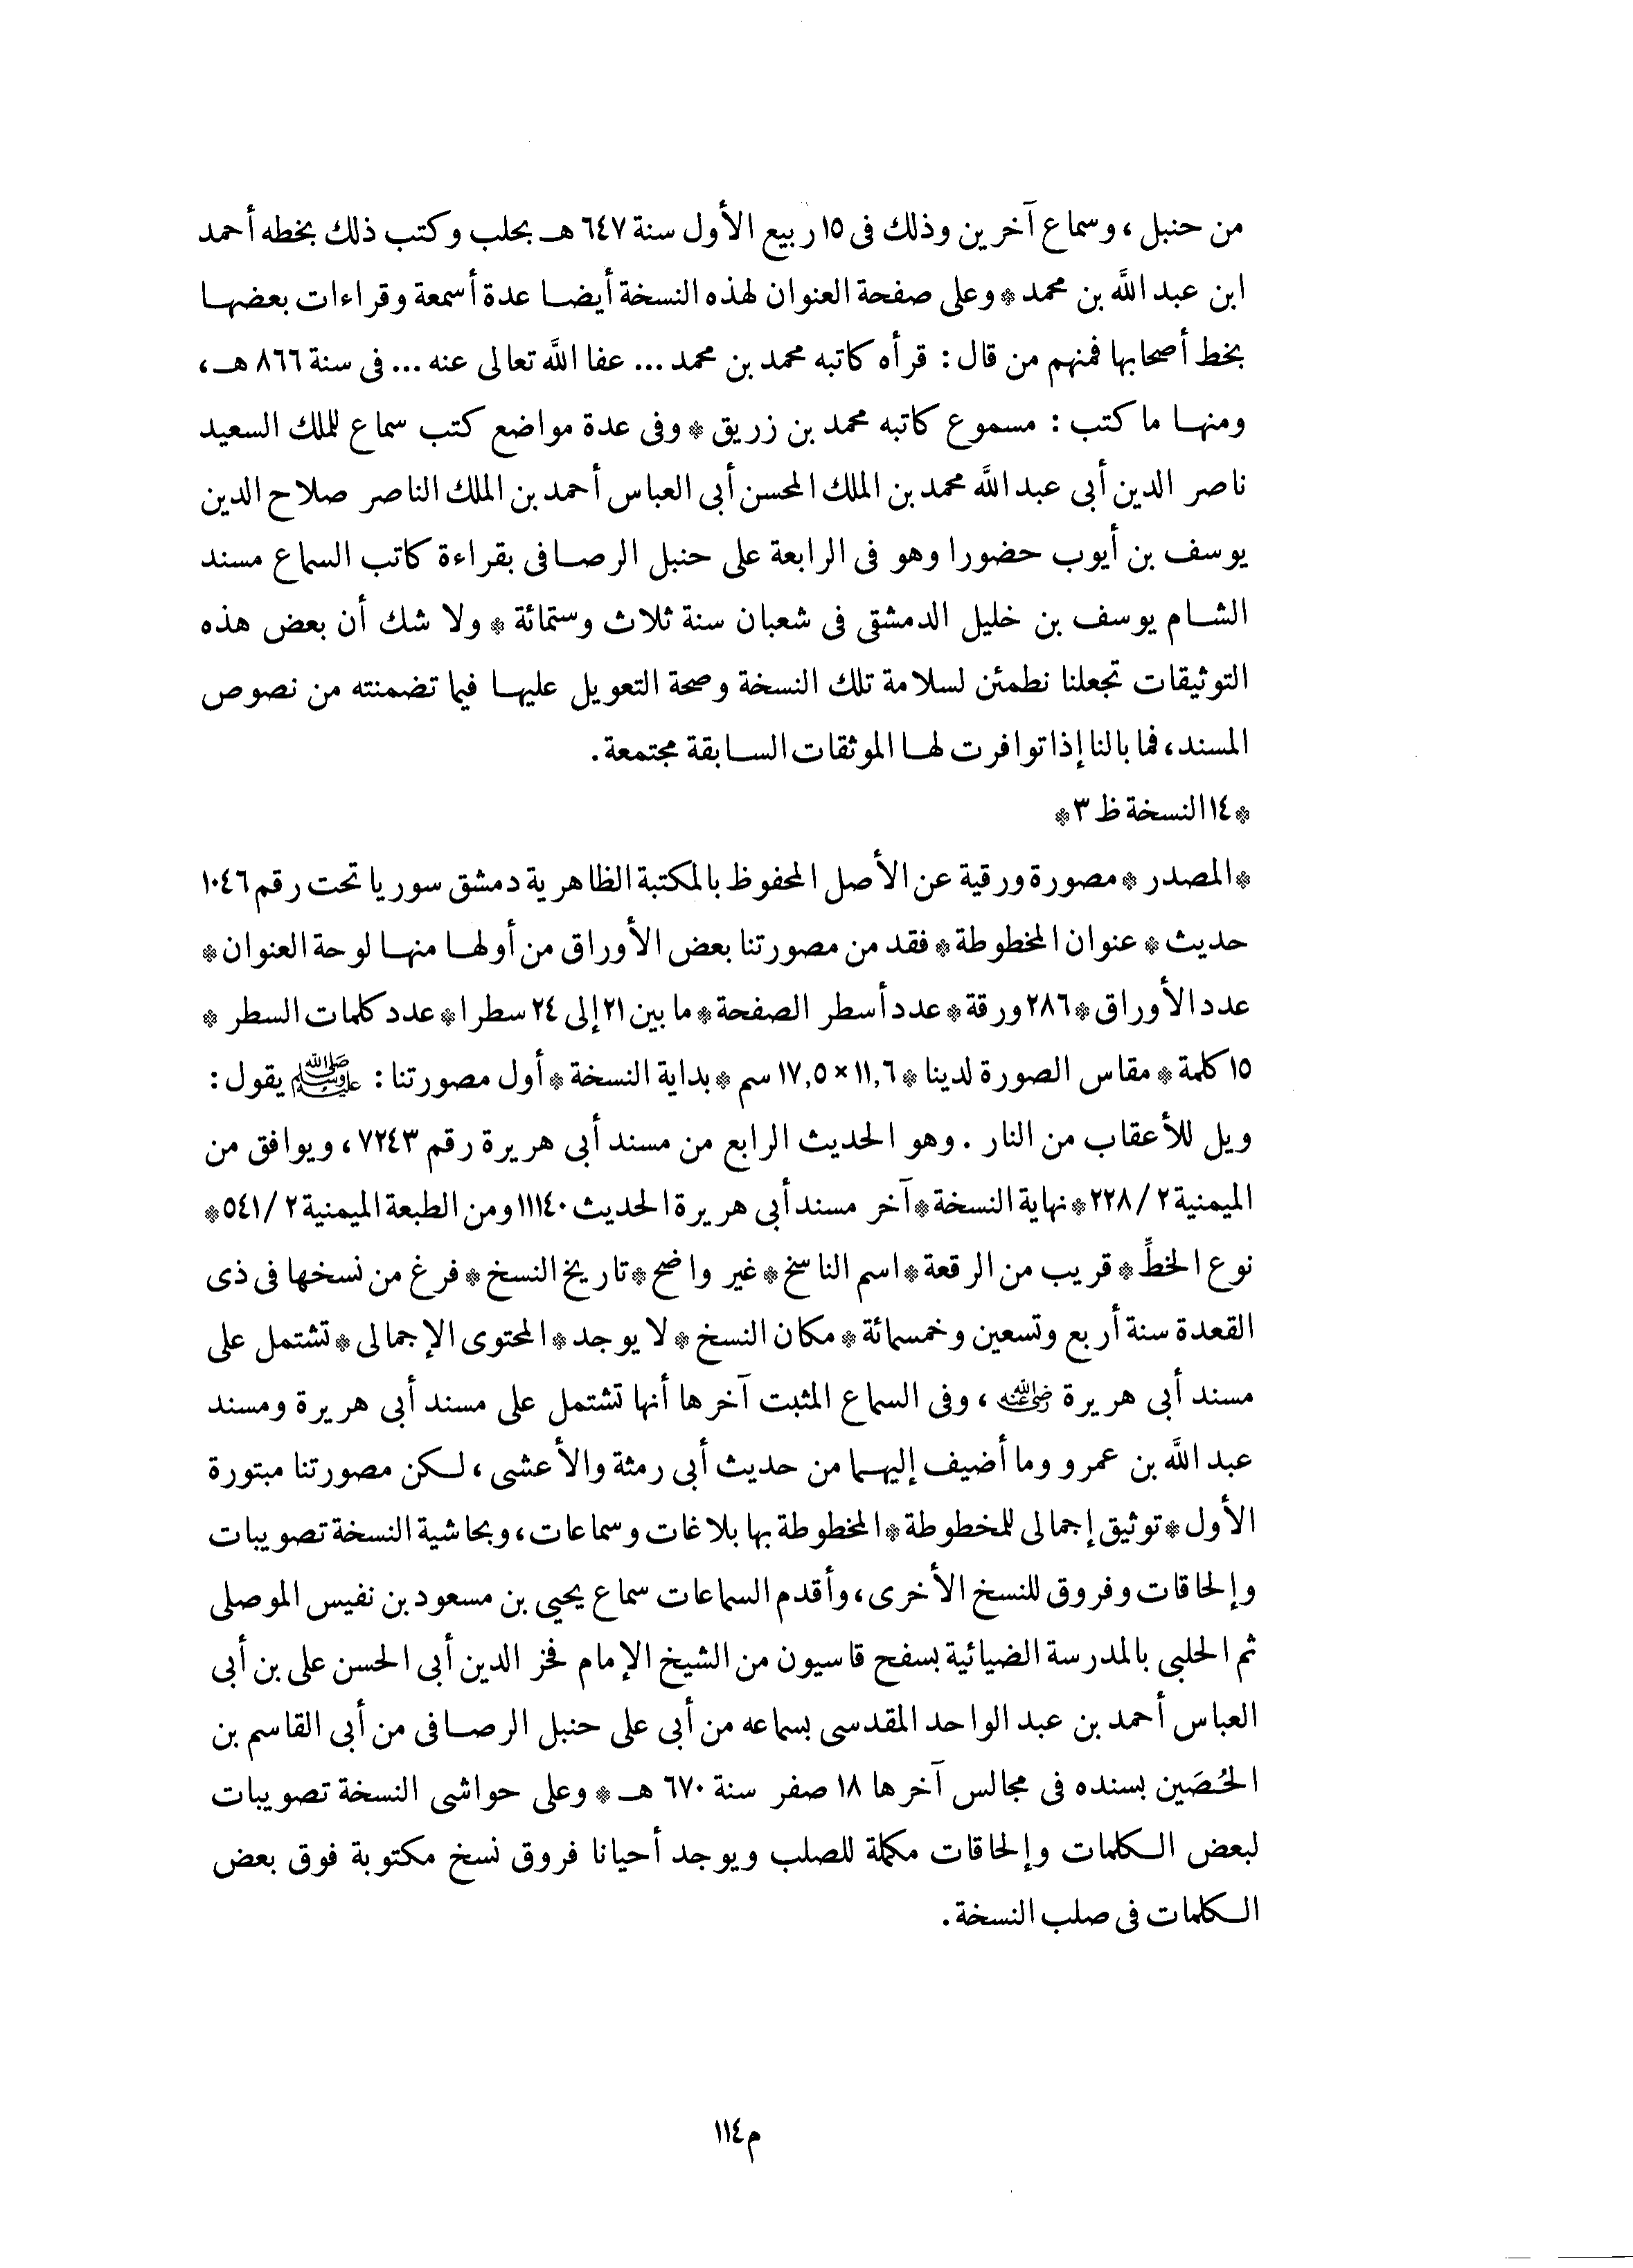 من حنبل ، وسماع آخرين وذلك فى ١٥ ربيع الأول سنة ٦٤٧ هـ بحلب وكتب ذلك بخطه أحمد
ابن عبد اللَّه بن محمد * وعلى صفحة العنوان لهذه النسخة أيضا عدة أسمعة وقراءات بعضها
بخط أصحابها فمنهم من قال : قرأه كاتبه محمد بن محمد ... عفا اللَّه تعالى عنه ... فى سنة ٨٦٦ هـ ،
ومنها ما كتب : مسموع كاتبه محمد بن زريق * وفى عدة مواضع كتب سماع للملك السعيد
ناصر الدين أبى عبد اللَّه محمد بن الملك المحسن أبى العباس أحمد بن الملك الناصر صلاح الدين
يوسف بن أيوب حضورا وهو فى الرابعة على حنبل الرصافى بقراءة كاتب السماع مسند
الشام يوسف بن خليل الدمشقى فى شعبان سنة ثلاث وستمائة * ولا شك أن بعض هذه
التوثيقات تجعلنا نطمئن لسلامة تلك النسخة وصحة التعويل عليها فيما تضمنته من نصوص
المسند ، فما بالنا إذا توافرت لها الموثقات السابقة مجتمعة .
* ١٤ النسخة ظ ٣ *
* المصدر * مصورة ورقية عن الأصل المحفوظ بالمكتبة الظاهرية دمشق سوريا تحت رقم ١٠٤٦
حديث * عنوان المخطوطة * فقد من مصورتنا بعض الأوراق من أولها منها لوحة العنوان *
عدد الأوراق * ٢٨٦ ورقة * عدد أسطر الصفحة * ما بين ٢١ إلى ٢٤ سطرا * عدد كلمات السطر *
١٥ كلمة * مقاس الصورة لدينا * ١١,٦ × ١٧,٥ سم * بداية النسخة * أول مصورتنا : ﷺ يقول :
ويل للأعقاب من النار . وهو الحديث الرابع من مسند أبى هريرة رقم ٧٢٤٣ ، ويوافق من
الميمنية ٢ / ٢٢٨ * نهاية النسخة * آخر مسند أبى هريرة الحديث ١١١٤٠ ومن الطبعة الميمنية ٢ / ٥٤١ *
نوع الخطِّ * قريب من الرقعة * اسم الناسخ * غير واضح * تاريخ النسخ * فرغ من نسخها فى ذى
القعدة سنة أربع وتسعين وخمسمائة * مكان النسخ * لا يوجد * المحتوى الإجمالى * تشتمل على
مسند أبى هريرة رضي الله عنه ، وفى السماع المثبت آخرها أنها تشتمل على مسند أبى هريرة ومسند
عبد اللَّه بن عمرو وما أضيف إليهما من حديث أبى رمثة والأعشى ، لكن مصورتنا مبتورة
الأول * توثيق إجمالى للمخطوطة * المخطوطة بها بلاغات وسماعات ، وبحاشية النسخة تصويبات
وإلحاقات وفروق للنسخ الأخرى ، وأقدم السماعات سماع يحيى بن مسعود بن نفيس الموصلى
ثم الحلبى بالمدرسة الضيائية بسفح قاسيون من الشيخ الإمام فخر الدين أبى الحسن على بن أبى
العباس أحمد بن عبد الواحد المقدسى بسماعه من أبى على حنبل الرصافى من أبى القاسم بن
الحُصَين بسنده فى مجالس آخرها ١٨ صفر سنة ٦٧٠ هـ * وعلى حواشى النسخة تصويبات
لبعض الكلمات وإلحاقات مكملة للصلب ويوجد أحيانا فروق نسخ مكتوبة فوق بعض
الكلمات فى صلب النسخة .
م ١١٤